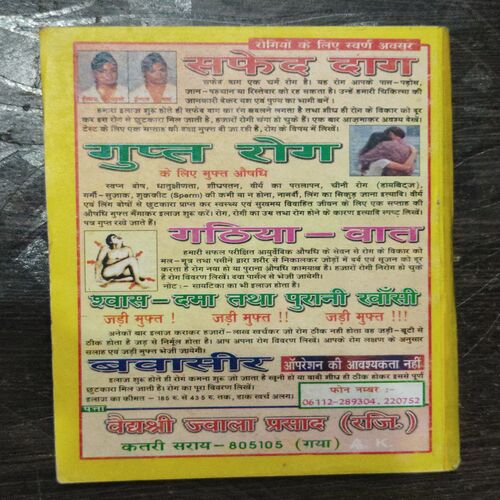 रोगियों के लिए स्वर्ण अवसर
सफेद दाग
सफेद दाग एक चर्म रोग है। यह रोग आपके पास-पड़ोस,
जान-पहचान या रिस्तेदार को रह सकता है। उन्हें हमारी चिकित्सा की
जानकारी देकर यश एवं पुण्य का भागी बनें।
हमारा इलाज शुरू होते ही सफेद दाग का रंग बदलने लगता है तथा शीघ्र ही रोग के विकार को दूर
कर इस रोग से छुटकारा मिल जाता है, हजारों रोगी चंगा हो चुके हैं। एक बार आजमाकर अवश्य देखें।
टेस्ट के लिए एक सप्ताह की दवा मुफ्त दी जा रही है, रोग के विषय में लिखें।
गुप्त रोग
के लिए मुफ्त औषधि
स्वप्न दोष, धातुक्षीणता, शीघ्रपतन, वीर्य का पतलापन, चीनी रोग (डायबिट्ज),
गर्मी-सुजाक, शुक्रकीट (Sperm) की कमी या न होना, नामर्दी, लिंग का सिकुड़ जाना इत्यादि। वीर्य
एवं लिंग दोषों से छुटकारा प्राप्त कर स्वस्थ्य एवं सुखमय विवाहित जीवन के लिए एक सप्ताह की
औषधि मुफ्त मँगाकर इलाज शुरू करें। रोग, रोगी का उम्र तथा रोग होने के कारण इत्यादि स्पष्ट लिखें।
पत्र गुप्त रखे जाते हैं।
गठिया-वात
हमारी सफल परीक्षित आयुर्वेदिक औषधि के सेवन से रोग के विकार को
मल-मूत्र तथा पसीने द्वारा शरीर से निकालकर जोड़ों में दर्द एवं सूजन को दूर
करता है रोग नया हो या पुराना औषधि कामयाब है। हजारों रोगी निरोग हो चुके
हैं रोग विवरण लिखें। दवा पार्सल से भेजी जायेगी।
नोट :- सायटिका का भी इलाज होता है।
श्वास-दमा तथा पुरानी खाँसी
जड़ी मुफ्त ! जड़ी मुफ्त !! जड़ी मुफ्त !!!
अनेकों बार इलाज कराकर हजारों-लाख खर्चकर जो रोग ठीक नही होता वह जड़ी-बूटी से
ठीक होता है जड़ से निर्मूल होता है। आप अपना रोग विवरण लिखें। आपके रोग लक्षण के अनुसार
सलाह एवं जड़ी मुफ्त भेजी जायेगी।
बवासीर ऑपरेशन की आवश्यकता नहीं
इलाज शुरू होते ही रोग कमना शुरू हो जाता है खूनी हो या वादी शीघ्र ही ठीक होकर इससे पूर्ण
छुटकारा मिल जाता है। रोग का पूरा विवरण लिखें।
इलाज का कीमत - 185 रू से 435 रू तक, डाक खर्च अलग।
फोन नम्बर :-
06112-289304, 220752
पत्ता
वैद्यश्री ज्वाला प्रसाद (रजि.)
कतरी सराय-805105 (गया) A. K.